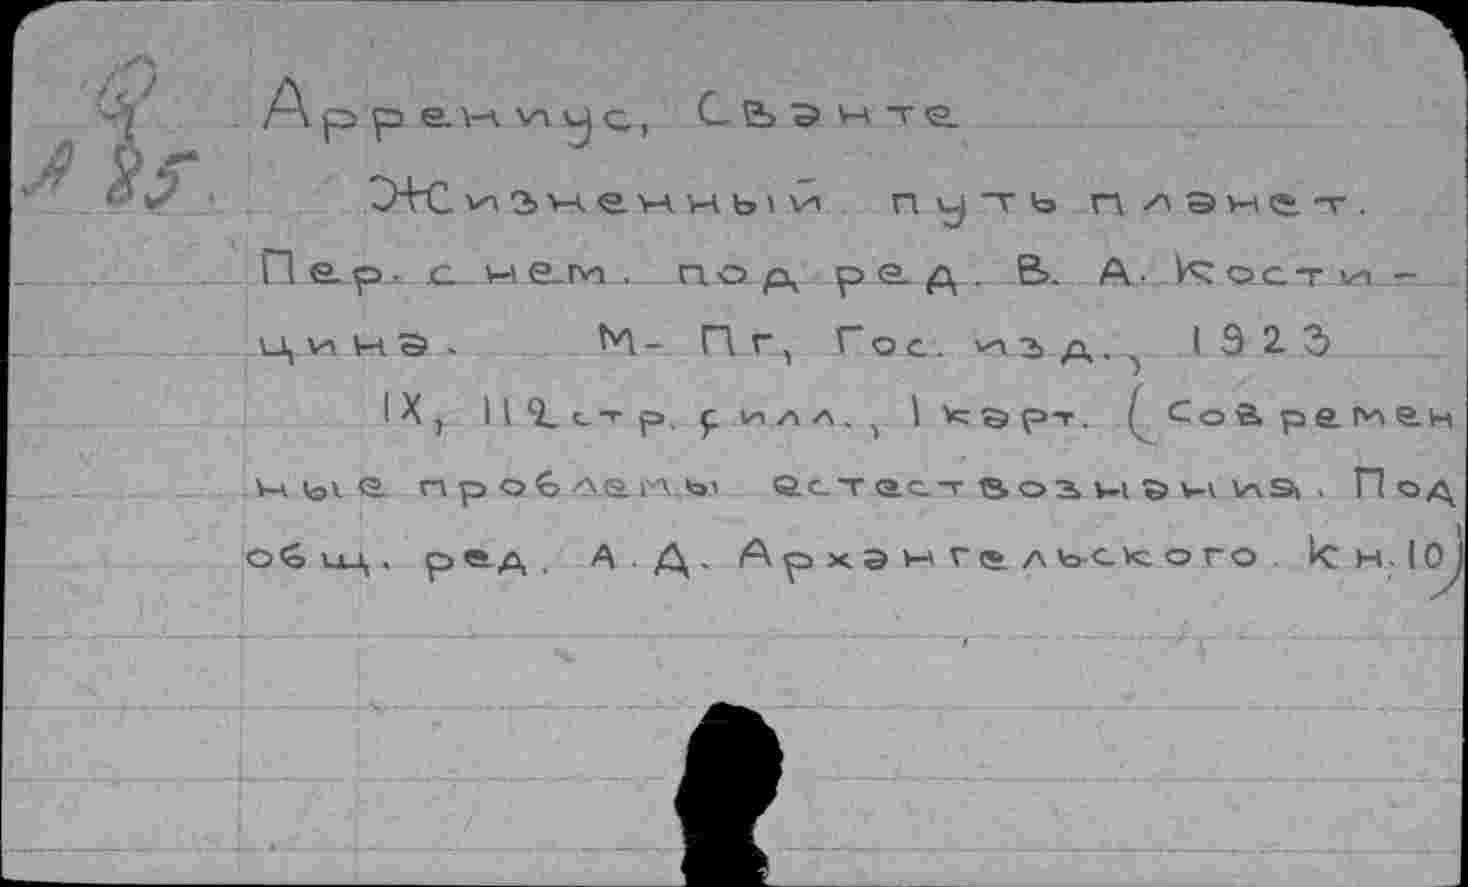 9
А 85.
Аррениус, Сванте
Жизненный путь планет.
Пер. с нем. под ред. В. А. Кости-
цина. М- Пг, Гос. изд., 1923
IX, 112 стр. с илл., 1 карт. (Современ
ные проблемы естествознания. Под
общ. ред. А. Д. Архангельского. Кн. 10)